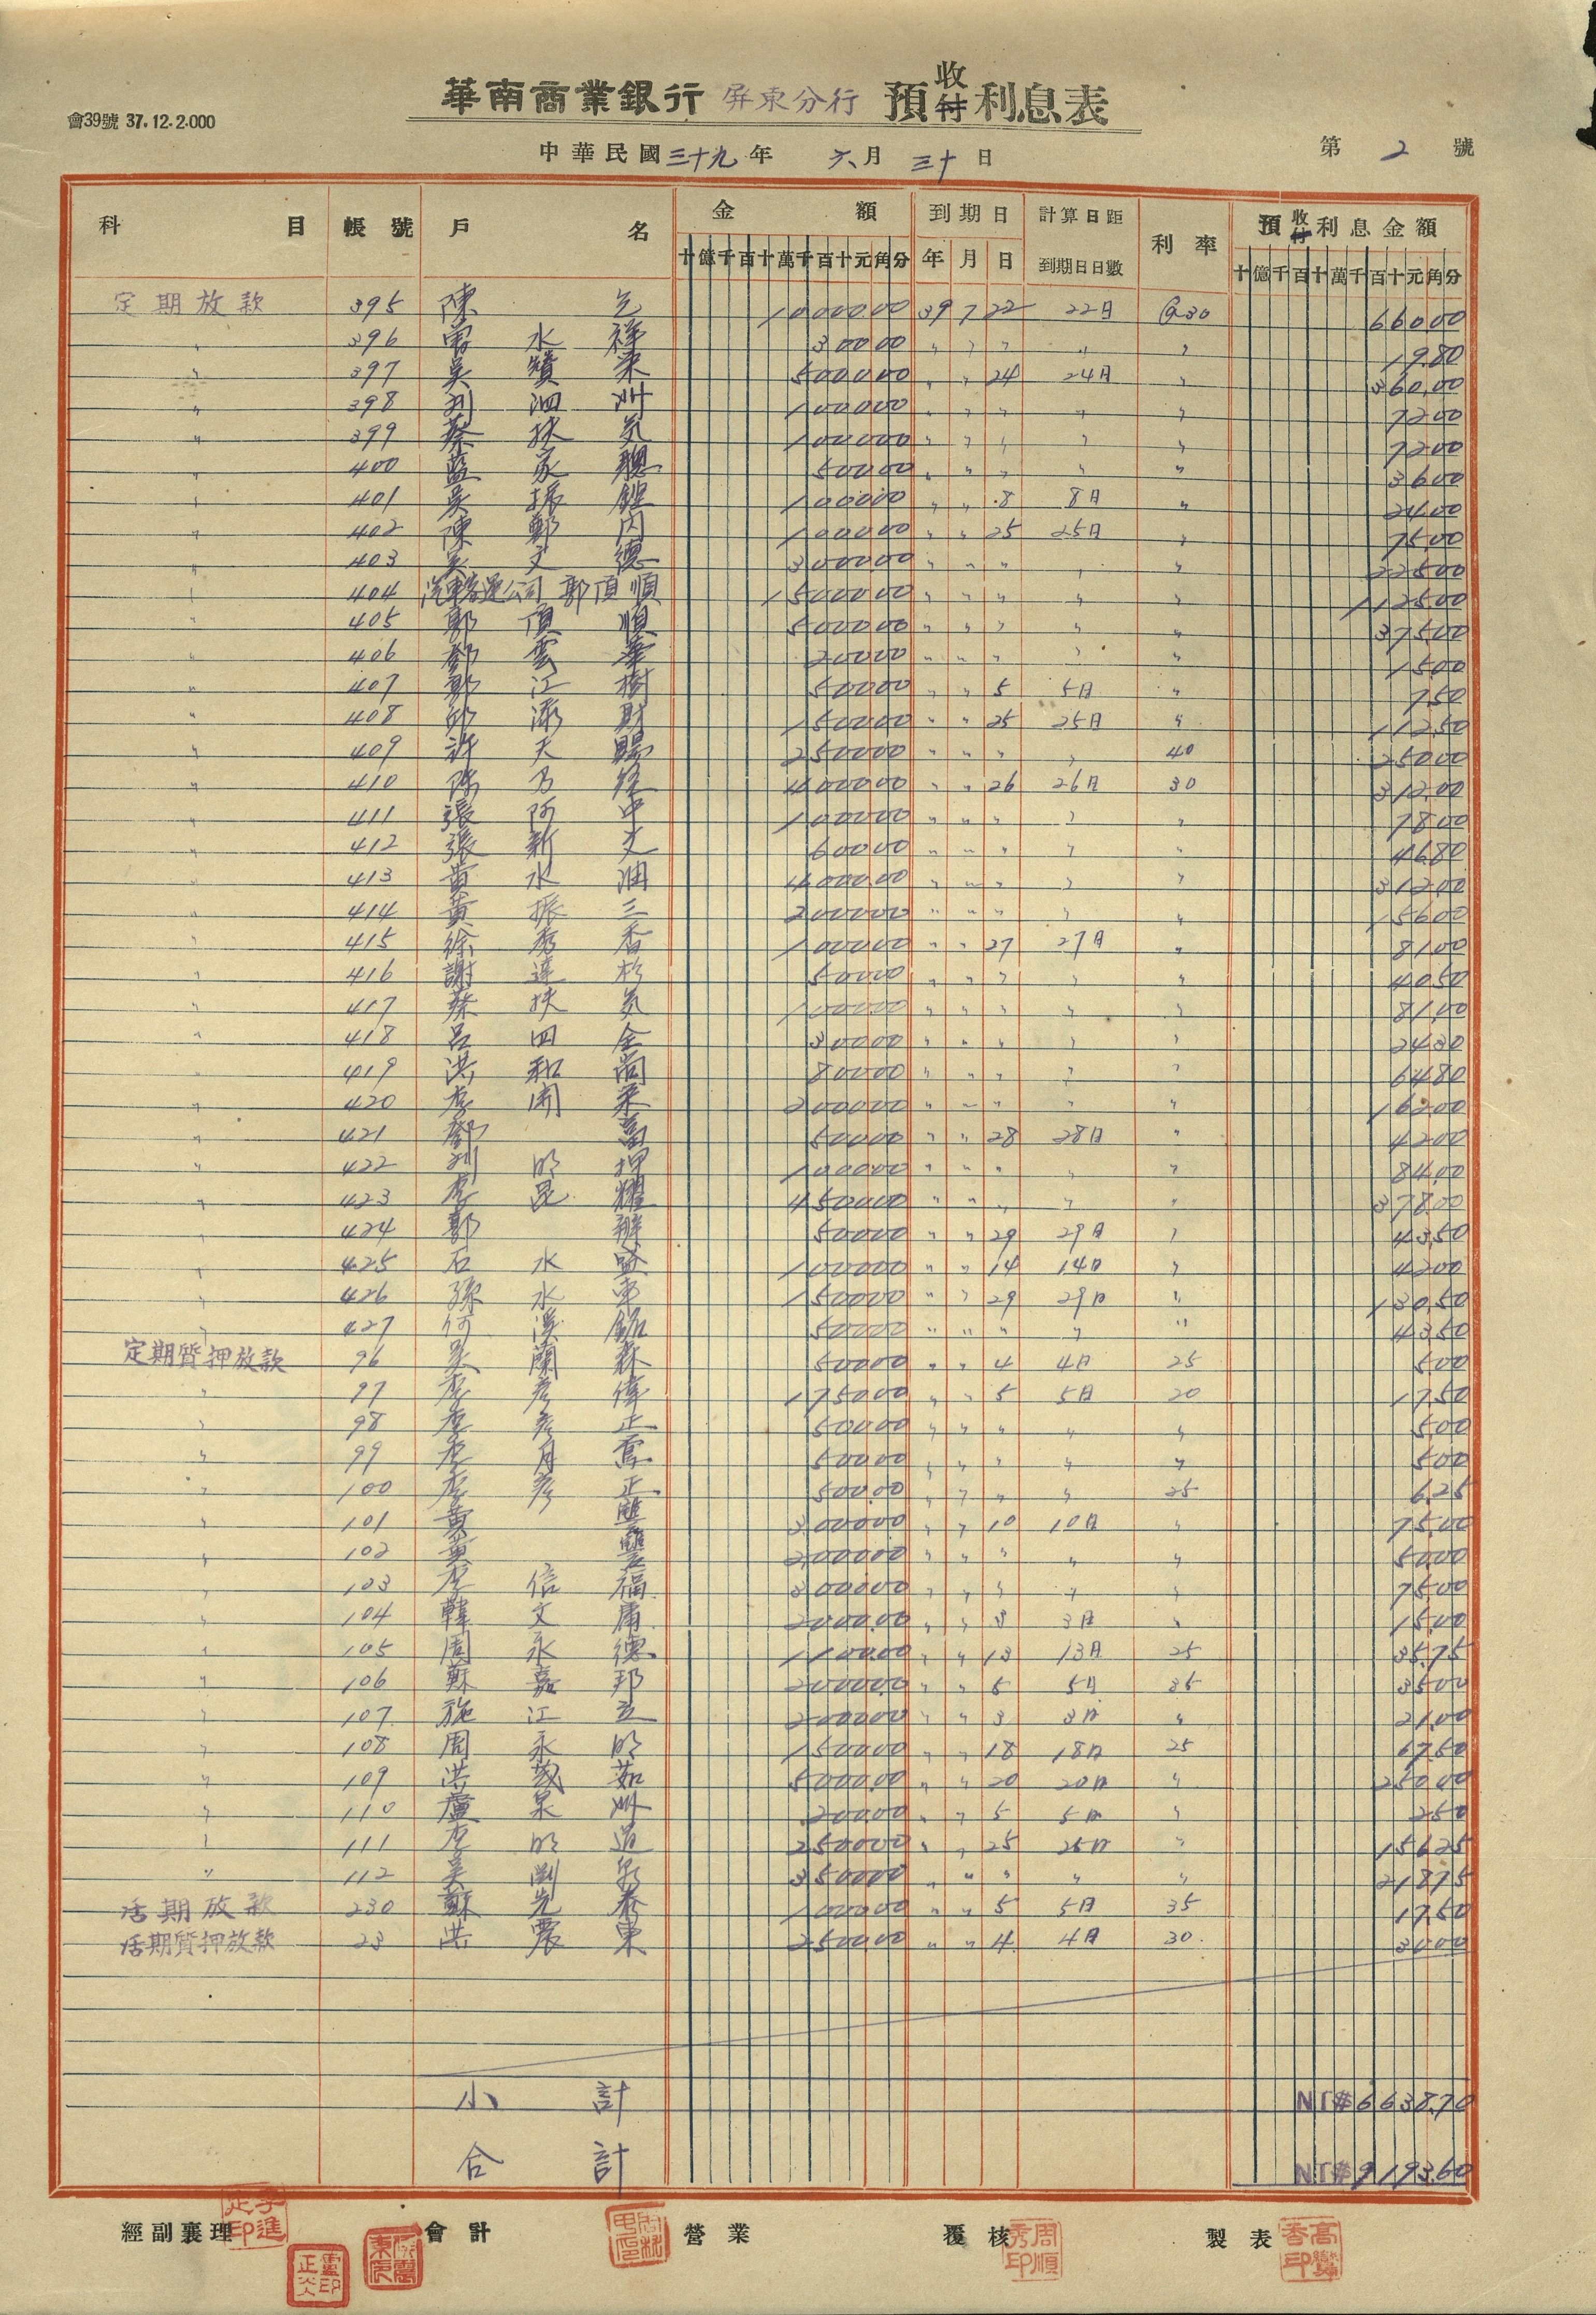 會39號 37.12.2.000
華南商業銀行 屏東分行 預收付利息表
中華民國三十九年 六月三十日
第 2 號
科目 帳號 戶名 金額 到期日 計算日距到期日日數 利率 預收付利息金額
十億千百十萬千百十元角分 年 月 日 十億千百十萬千百十元角分
定期放款 395 陳 10000.00 39 7 22 22日 @30 660.00
〃 396 曾水祥 300.00 〃 〃 〃 〃 〃 19.80
〃 397 吳贊 5000.00 〃 〃 24 24日 〃 360.00
〃 398 泗州 1000.00 〃 〃 〃 〃 〃 72.00
〃 399 蔡扶氣 1000.00 〃 〃 〃 〃 〃 72.00
〃 400 藍家聰 500.00 〃 〃 〃 〃 〃 36.00
〃 401 吳振 1000.00 〃 〃 8 8日 〃 24.00
〃 402 陳鄭內 1000.00 〃 〃 25 25日 〃 75.00
〃 403 吳文德 3000.00 〃 〃 〃 〃 〃 225.00
〃 404 汽車客運公司 郭頂順 15000.00 〃 〃 〃 〃 〃 1125.00
〃 405 郭頂順 5000.00 〃 〃 〃 〃 〃 375.00
〃 406 鄧雲華 200.00 〃 〃 〃 〃 〃 15.00
〃 407 郭江樹 500.00 〃 〃 5 5日 〃 7.50
〃 408 邱添財 1500.00 〃 〃 25 25日 〃 112.50
〃 409 許天賜 2500.00 〃 〃 〃 〃 40 250.00
〃 410 陳乃 4000.00 〃 〃 26 26日 30 312.00
〃 411 張阿中 1000.00 〃 〃 〃 〃 〃 78.00
〃 412 張新 600.00 〃 〃 〃 〃 〃 46.80
〃 413 黃水涸 4000.00 〃 〃 〃 〃 〃 312.00
〃 414 黃振三 2000.00 〃 〃 〃 〃 〃 156.00
〃 415 徐秀香 1000.00 〃 〃 27 27日 〃 81.00
〃 416 謝達杉 500.00 〃 〃 〃 〃 〃 40.50
〃 417 蔡扶氣 1000.00 〃 〃 〃 〃 〃 81.00
〃 418 呂四全 300.00 〃 〃 〃 〃 〃 24.30
〃 419 洪和尚 800.00 〃 〃 〃 〃 〃 64.80
〃 420 李開來 2000.00 〃 〃 〃 〃 〃 162.00
〃 421 鄧 500.00 〃 〃 28 28日 〃 42.00
〃 422 明押 1000.00 〃 〃 〃 〃 〃 84.00
〃 423 李昆耀 4500.00 〃 〃 〃 〃 〃 378.00
〃 424 郭辦 500.00 〃 〃 29 29日 〃 43.50
〃 425 石水盛 1000.00 〃 〃 14 14日 〃 42.00
〃 426 孫水車 1500.00 〃 〃 29 29日 〃 130.50
〃 427 何漢銘 500.00 〃 〃 〃 〃 〃 43.50
定期質押放款 96 吳蘭森 500.00 〃 〃 4 4日 25 5.00
〃 97 李彥偉 1750.00 〃 〃 5 5日 20 17.50
〃 98 李彥正 500.00 〃 〃 〃 〃 〃 5.00
〃 99 李月霞 500.00 〃 〃 〃 〃 〃 5.00
〃 100 李彥正 500.00 〃 〃 〃 〃 25 6.25
〃 101 黃雙 3000.00 〃 〃 10 10日 〃 75.00
〃 102 黃雙 2000.00 〃 〃 〃 〃 〃 50.00
〃 103 李信福 3000.00 〃 〃 〃 〃 〃 75.00
〃 104 韓文庸 2000.00 〃 〃 3 3日 〃 15.00
〃 105 周永德 1100.00 〃 〃 13 13日 25 35.75
〃 106 蘇嘉邦 2000.00 〃 〃 5 5日 35 35.00
〃 107 施江立 2000.00 〃 〃 3 3日 〃 21.00
〃 108 周永明 1500.00 〃 〃 18 18日 25 67.50
〃 109 洪茂茹 5000.00 〃 〃 20 20日 〃 250.00
〃 110 盧泉州 200.00 〃 〃 5 5日 〃 2.50
〃 111 李明道 2500.00 〃 〃 25 25日 〃 156.25
〃 112 吳劉 3500.00 〃 〃 〃 〃 〃 218.75
活期放款 230 蘇光泰 1000.00 〃 〃 5 5日 35 17.50
活期質押放款 23 洪震東 2500.00 〃 〃 4 4日 30 30.00
小計 NT$6638.70
合計 NT$9193.60
經副襄理 會計 營業 覆核 製表